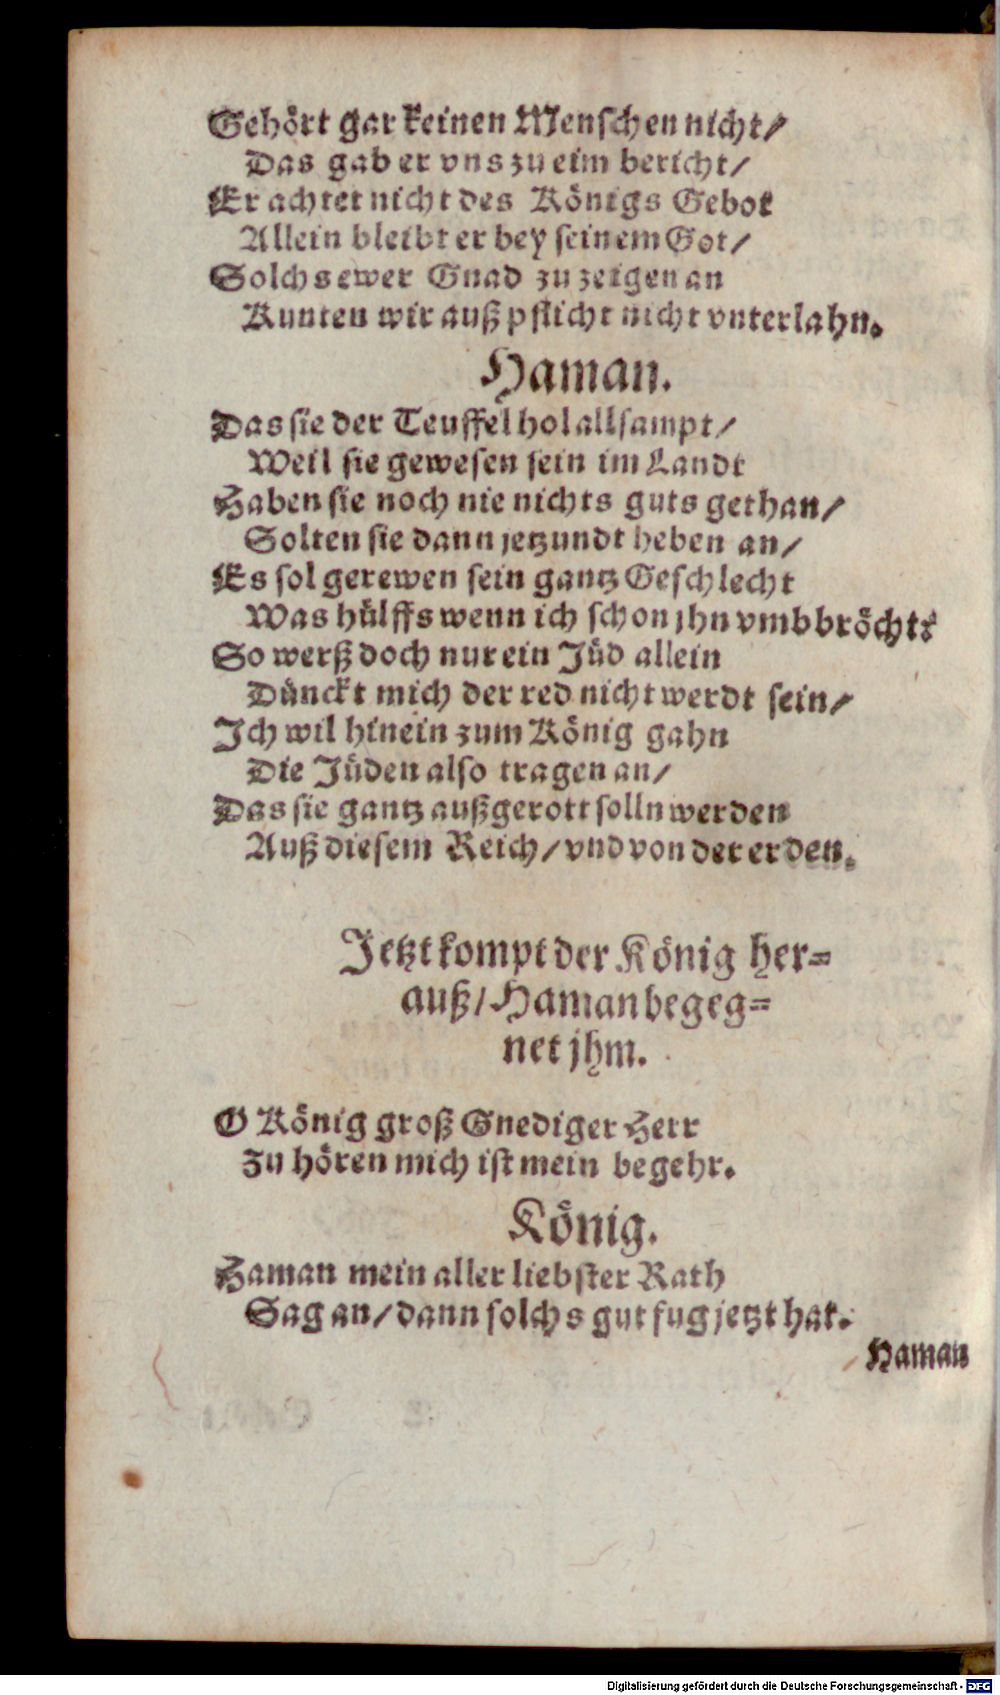 Gehört gar keinen Menschen nicht/
Das gab er vns zu eim bericht/
Er achtet nicht des Königs Gebot
Allein bleibt er bey seinem Got/
Solchs ewer Gnad zu zeigen an
Kunten wir auß pflicht nicht vnterlahn.
Haman.
Das sie der Teuffel hol allsampt/
Weil sie gewesen sein im Landt
Haben sie noch nie nichts guts gethan/
Solten sie dann jetzundt heben an/
Es sol gerewen sein gantz Geschlecht
Was hülffs wenn ich schon jhn vmbbröcht?
So werß doch nur ein Jüd allein
Dünckt mich der red nicht werdt sein/
Ich wil hinein zum König gahn
Die Jüden also tragen an/
Das sie gantz außgerott solln werden
Auß diesem Reich/ vnd von der erden.
Jetzt kompt der König her=
auß/ Haman begeg=
net jhm.
O König groß Gnediger Herr
Zu hören mich ist mein begehr.
König.
Haman mein aller liebster Rath
Sag an/ dann solchs gut fug jetzt hat.
Haman
Digitalisierung gefördert durch die Deutsche Forschungsgemeinschaft - DFG